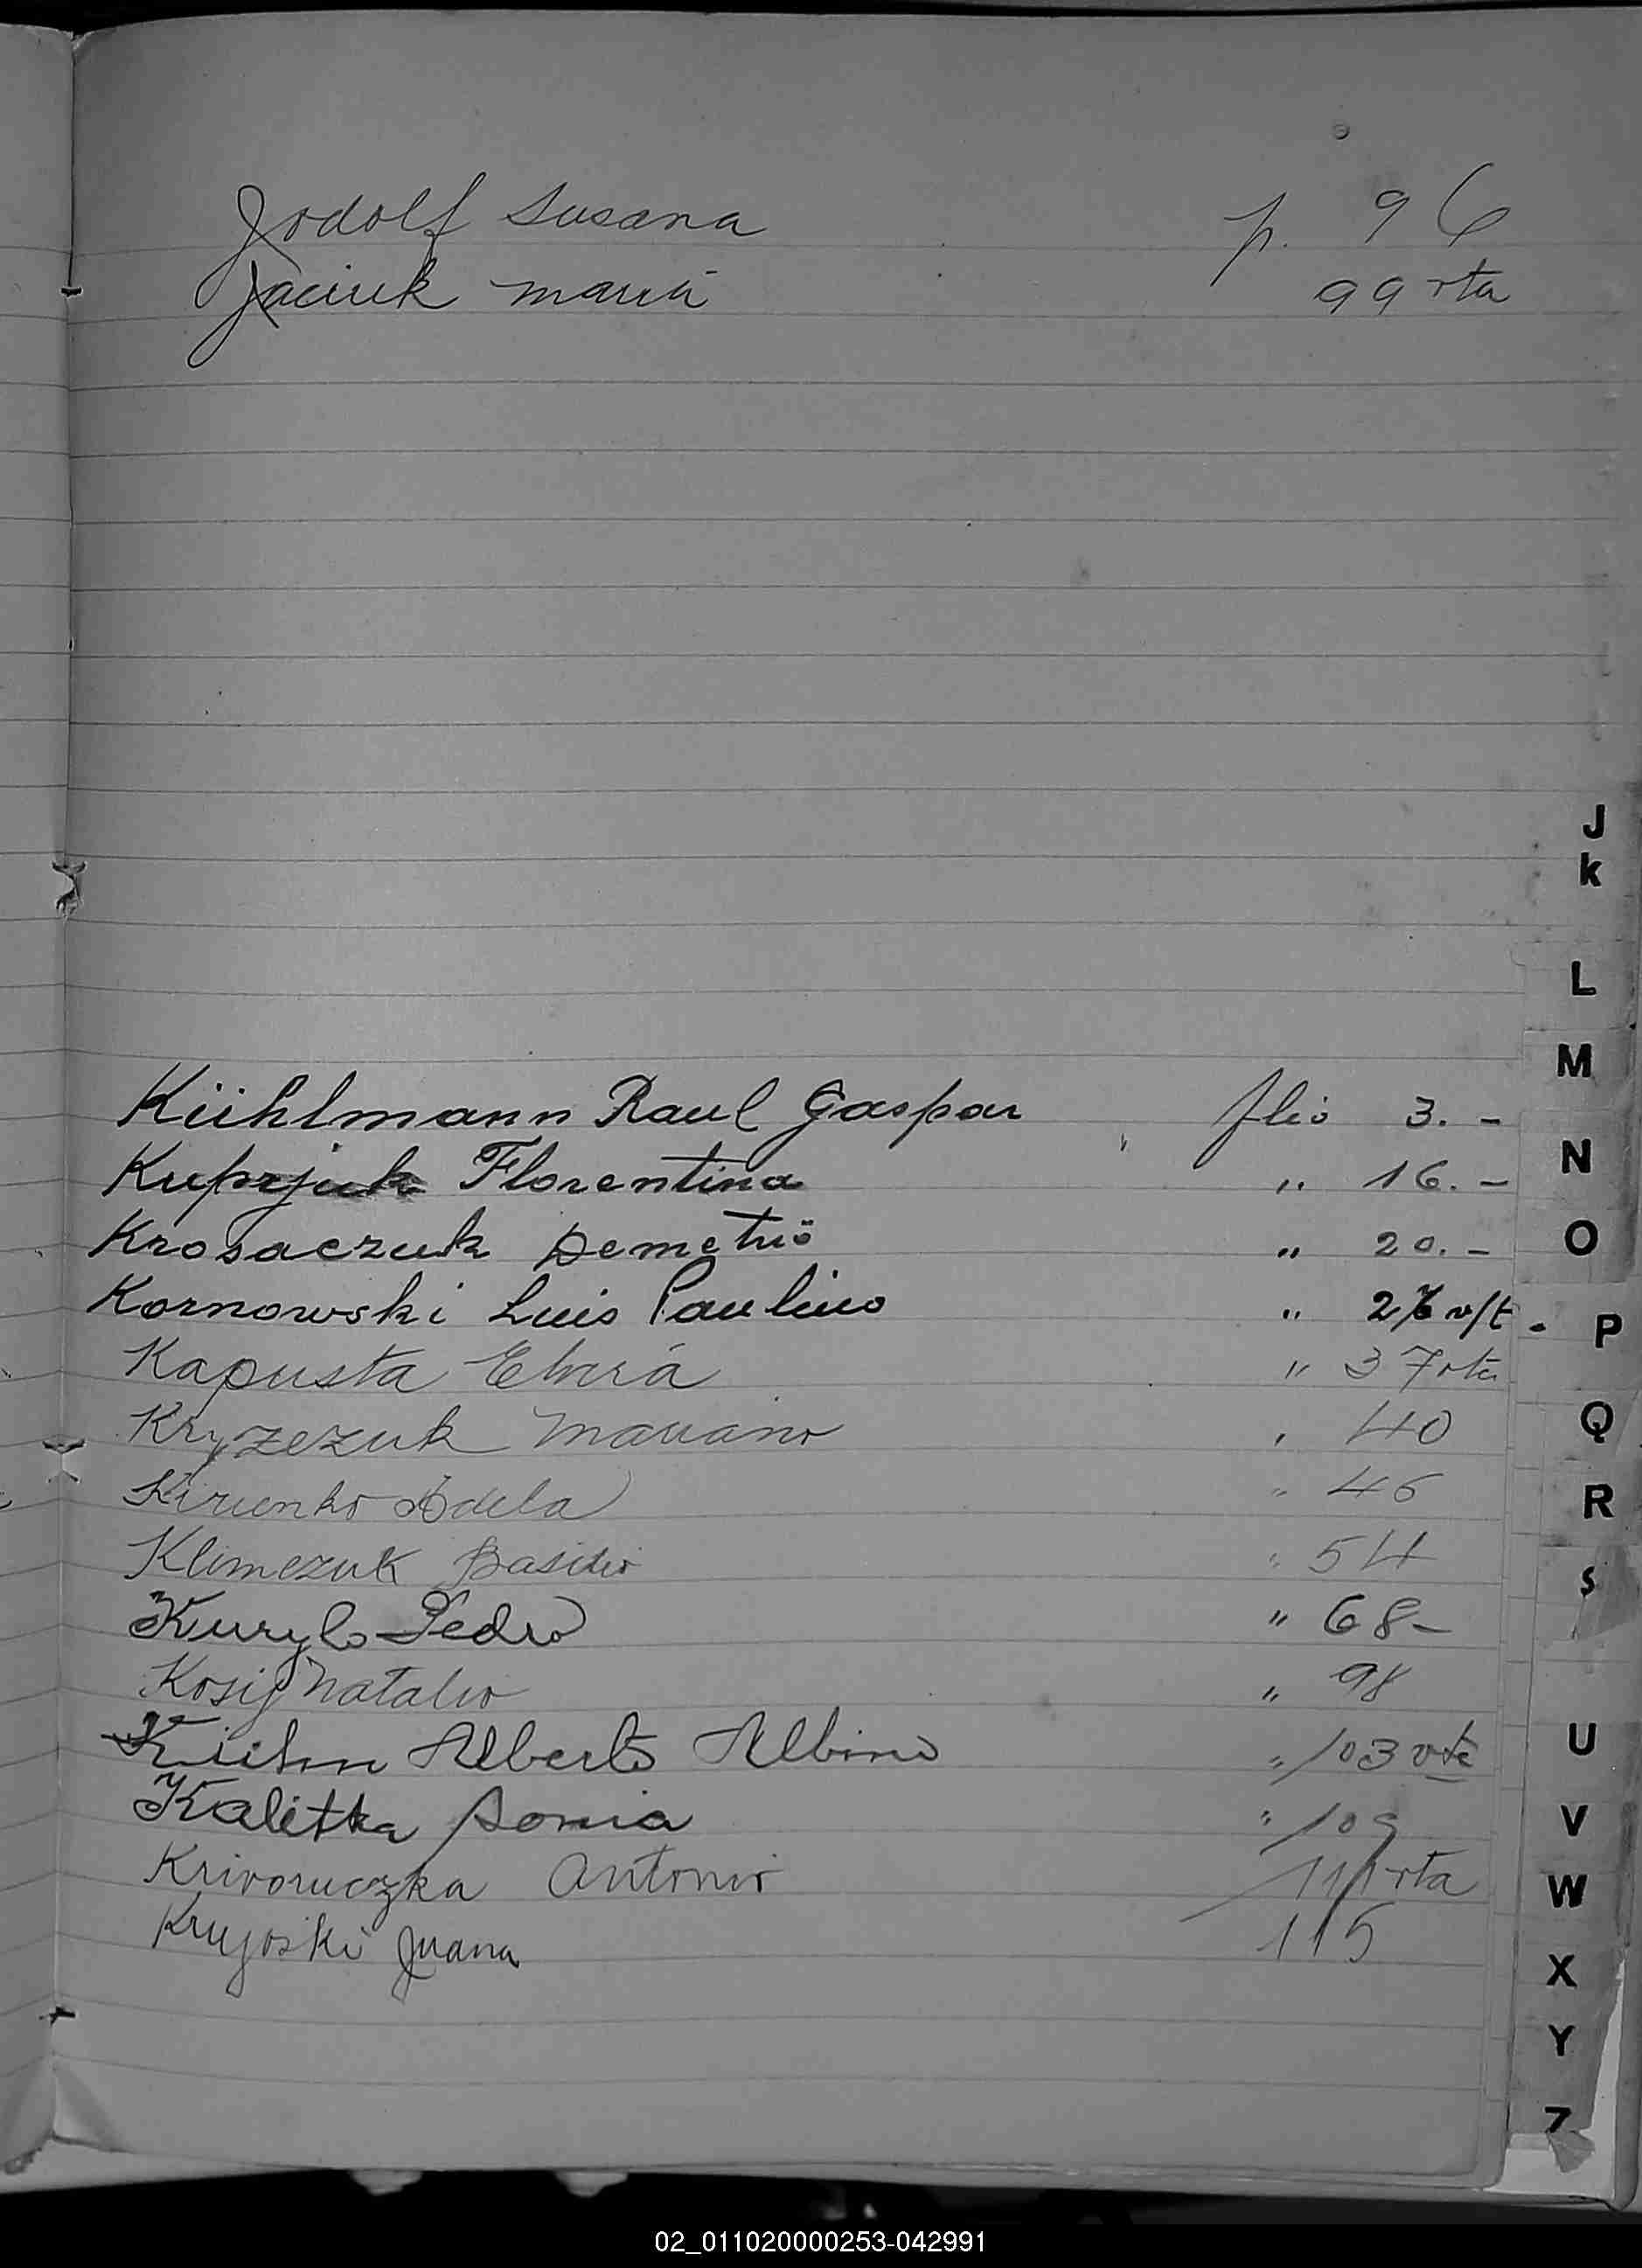 Jodolf Susana p. 96
Jaciuk maria 99 vta
J
k
L
M
Kühlmann Raul Gaspar flio 3. -
N
Kuprjuk Florentina " 16. -
O
Krosaczuk Demetrio " 20. -
Kornowski Luis Paulino " v/t.
P
Kapusta Elvira " 37 vta
Q
Kryzezuk Mariano " 40
R
Kirienko Adela " 46
S
Klimezuk Basilio " 54
Kurylo Pedro " 68 -
Kosig Natalio " 98
U
Kühn Alberto Albino " 103 vta
V
Kalitka Sonia " 109
W
Krivoruczka Antonio 111 vta
X
Krujoski Juana 115
Y
Z
02_011020000253-042991